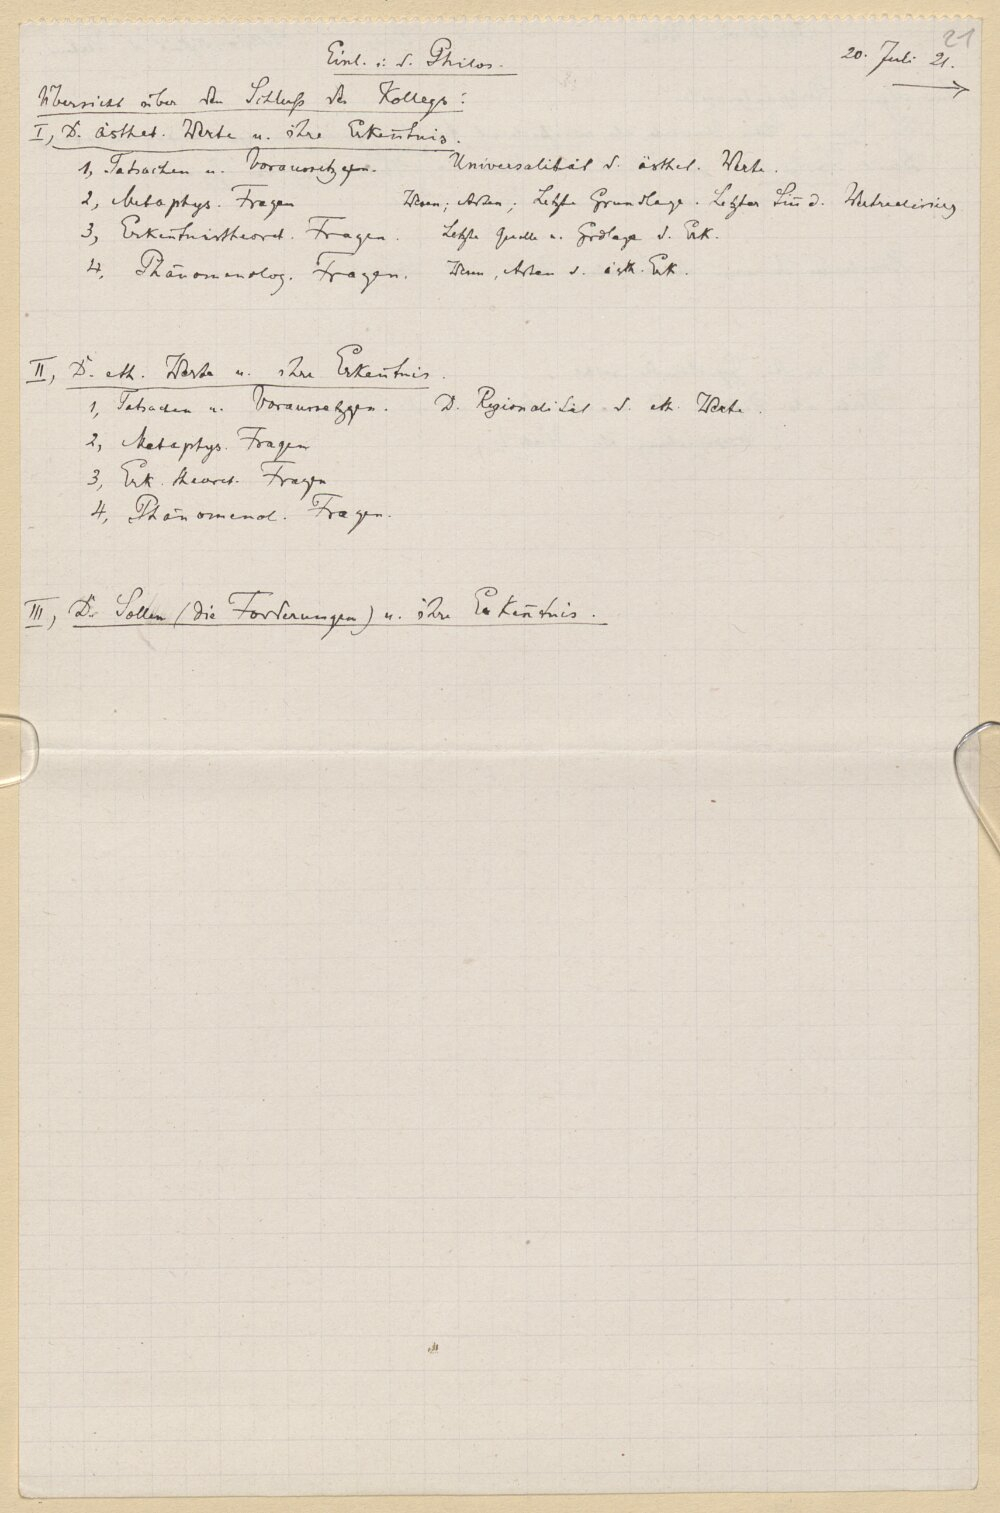 21
Einl. i. d. Philos. 20. Juli 21.
Übersicht über den Schluß des Kollegs:
I, D. ästhet. Werte u. ihre Erkenntnis.
1, Tatsachen u. Voraussetzgen. Universalität d. ästhet. Werte.
2, Metaphys. Fragen Wesen; Arten; Letzte Grundlage. Letzter Sinn d. Wertrealisierg
3, Erkenntnistheoret. Fragen. Letzte Quelle u. Grdlage d. Erk.
4, Phänomenolog. Fragen. Wesen, Arten d. ästh. Erk.
II, D. eth. Werte u. ihre Erkenntnis.
1, Tatsachen u. Voraussetzgen. D. Regionalität d. eth. Werte.
2, Metaphys. Fragen
3, Erk. theoret. Fragen
4, Phänomenol. Fragen.
III, D. Sollen (die Forderungen) u. ihre Erkenntnis.